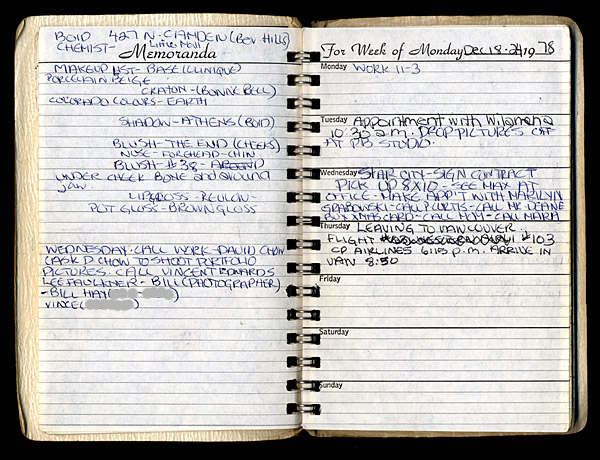 BOID 427 N. CAMDEN (BEV HILLS)
CHEMIST- Little Mall
Memoranda
MAKEUP LIST- BASE (CLINIQUE)
PORCELAIN BEIGE
CRAYON-(BONNE BELL)
COLORADO COLOURS-EARTH
SHADOW-ATHENS (BOID)
BLUSH-THE END (CHEEKS)
NOSE-FOREHEAD-CHIN
BLUSH-# 38-
UNDER CHEEK BONE and around
JAW.
LIPGLOSS-REVLON-
POT GLOSS-BROWN GLOSS
WEDNESDAY-CALL WORK-DAVID CHOW
(ASK D. CHOW TO SHOOT PORTFOLIO
PICTURES. CALL VINCENT EDWARDS
LEE FAULKNER-BILL (PHOTOGRAPHER)
-BILL HAY( )
VINCE( )
For Week of Monday Dec 18-24 19 78
Monday WORK 11-3
Tuesday Appointment with Wilamena
10:30 a.m. DROP PICTURES OFF
AT PB STUDIO.
Wednesday STAR CITY-SIGN CONTRACT
PICK UP 8X10-SEE MAX AT
OFFICE-MAKE APP'T WITH MARILYN
GRABOWSKI-CALL P. CULTS-CALL MR. DEANE
BUY XMAS CARD-CALL MOM-CALL MARIA
Thursday LEAVING TO VANCOUVER
FLIGHT #103
CP AIRLINES 6:15 P.M. ARRIVE IN
VAN 8:50
Friday
Saturday
Sunday